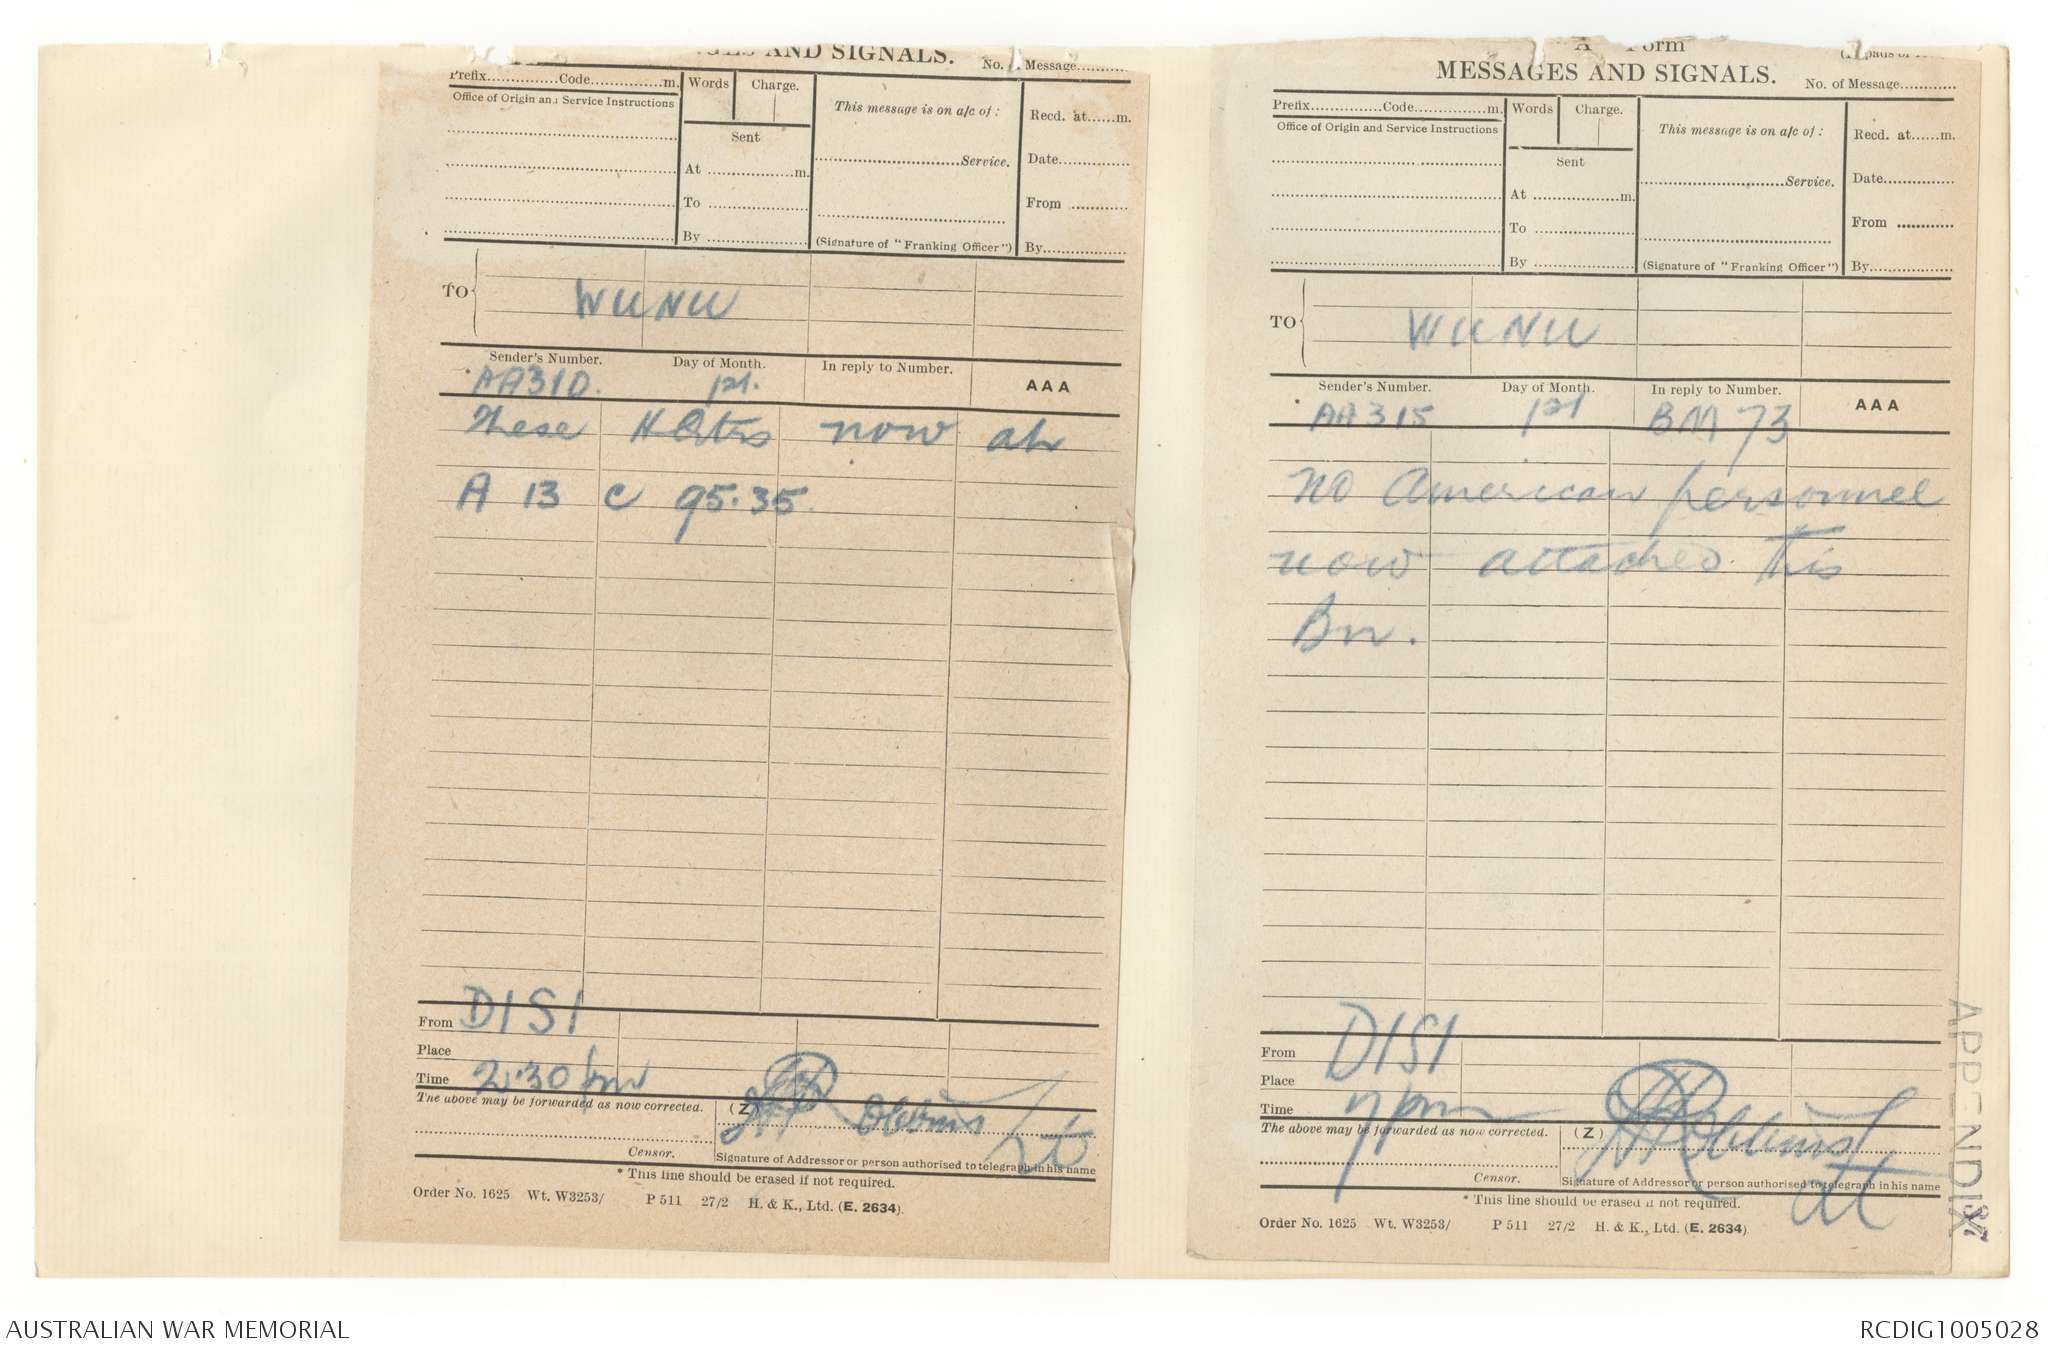 GES AND SIGNALS.
No. of Message............
Prefix...............Code...............m.
Words
Charge.
This message is on a/c of :
Recd. at......m.
Office of Origin and Service Instructions
Sent
At ..................m.
To .....................
By .....................
.............................Service.
(Signature of "Franking Officer")
Date...............
From ............
By..................
TO
WUNU
Sender's Number.
Day of Month.
In reply to Number.
AAA
AA310.
1st.
These H Qtrs now at
A 13 c 95.35.
From DISI
Place
Time 2.30 pm
The above may be forwarded as now corrected.
(Z)
Lt
Censor.
Signature of Addressor or person authorised to telegraph in his name
* This line should be erased if not required.
Order No. 1625 Wt. W3253/ P 511 27/2 H. & K., Ltd. (E. 2634).
"A" Form
MESSAGES AND SIGNALS.
No. of Message............
Prefix...............Code...............m.
Words
Charge.
This message is on a/c of :
Recd. at......m.
Office of Origin and Service Instructions
Sent
At ..................m.
To .....................
By .....................
.............................Service.
(Signature of "Franking Officer")
Date...............
From ............
By..................
TO
WUNU
Sender's Number.
Day of Month.
In reply to Number.
AAA
AA315
1st
BM 73
No American personnel
now attached this
Bn.
From DISI
Place
Time 7pm
The above may be forwarded as now corrected.
(Z)
Censor.
Signature of Addressor or person authorised to telegraph in his name
* This line should be erased if not required.
Order No. 1625 Wt. W3253/ P 511 27/2 H. & K., Ltd. (E. 2634).
APPENDIX
AUSTRALIAN WAR MEMORIAL
RCDIG1005028